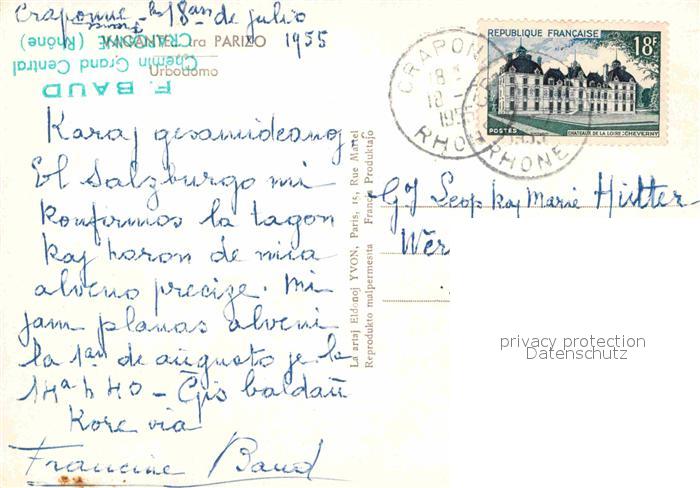 Craponne - la 18an de julio
1955
VAGANTE tra PARIZO
Urbodomo
F. BAUD
Chemin Grand Central
CRAPONNE (Rhône)
Karaj gesamideanoj
El Salzburgo mi
konfirmos la tagon
kaj horon de mia
alveno precize. Mi
jam planas alveni
la 1an de aŭgusto je la
14a h 40 - Ĝis baldaŭ
Kore via
Francine Baud
La artaj Eldonoj YVON, Paris, 15, Rue Martel
Reprodukto malpermesita Franca Produktaĵo
RÉPUBLIQUE FRANÇAISE
18F
POSTES
CHATEAUX DE LA LOIRE: CHEVERNY
CRAPONNE
18
1955
RHONE
RHONE
Gj Leop kaj Marie Hütter
Wer
privacy protection
Datenschutz